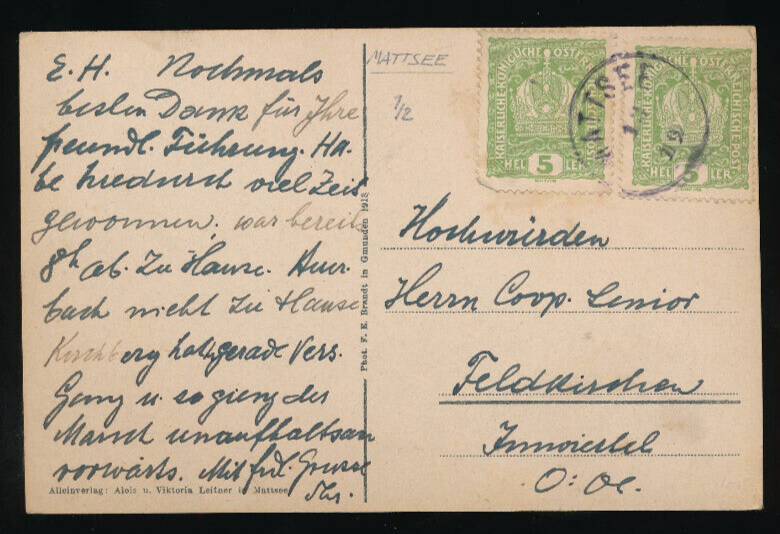 E. H. Nochmals
besten Dank für Ihre
freundl. Führung. Ha-
be hiedurch viel Zeit
gewonnen. war bereits
8h ab. zu Hause. Auer-
bach nicht zu Hause
Kirchberg hatte gerade Vers.
Gang u. so gieng der
Marsch unaufhaltsam
vorwärts. Mit frdl. Grusse
Ihr.
Alleinverlag: Alois u. Viktoria Leitner in Mattsee
Phot. F. E. Brandt in Gmunden 1913
MATTSEE
1/2
KAISERLICHE KÖNIGLICHE ÖSTERR
HELLER 5
MATTSEE
KAISERLICHE KÖNIGLICHE ÖSTERREICHISCHE POST
HELLER 5
Hochwürden
Herrn Coop. Senior
Feldkirchen
Innviertel
O: Oe.